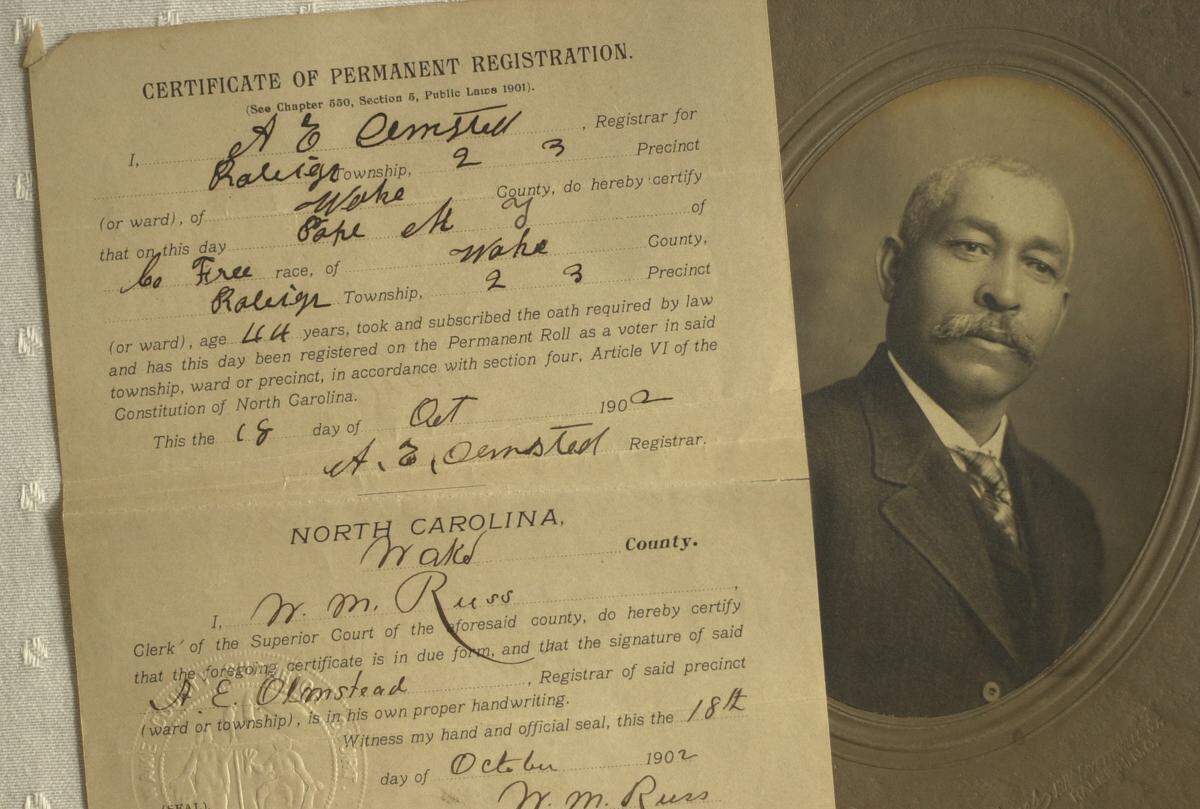 CERTIFICATE OF PERMANENT REGISTRATION.
(See Chapter 550, Section 5, Public Laws 1901).
I, A E Olmsted, Registrar for
Raleigh Township, 2 3 Precinct
(or ward), of Wake County, do hereby certify
that on this day Pope M of
Co Free race, of Wake County,
Raleigh Township, 2 3 Precinct
(or ward), age 44 years, took and subscribed the oath required by law
and has this day been registered on the Permanent Roll as a voter in said
township, ward or precinct, in accordance with section four, Article VI of the
Constitution of North Carolina.
This the 18 day of Oct 1902
A. E. Olmsted Registrar.
NORTH CAROLINA,
Wake County.
I, W. M. Russ,
Clerk of the Superior Court of the aforesaid county, do hereby certify
that the foregoing certificate is in due form, and that the signature of said
A. E. Olmstead, Registrar of said precinct
(ward or township), is in his own proper handwriting.
Witness my hand and official seal, this the 18th
day of October 1902
(SEAL) W. M. Russ